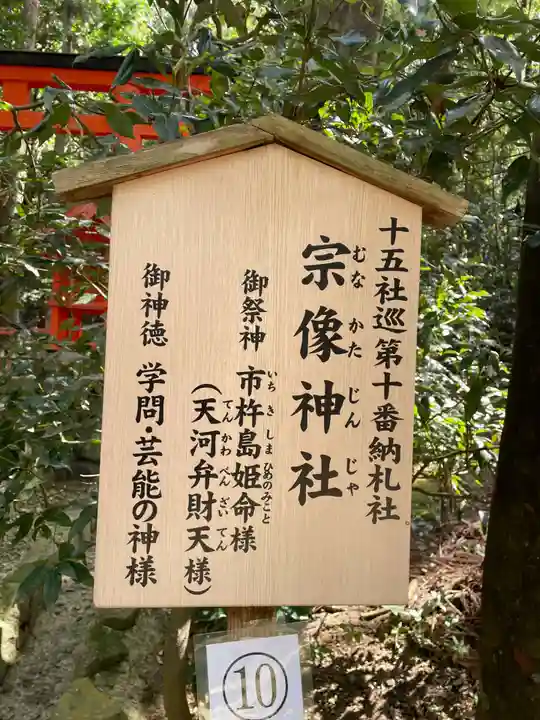 十五社巡第十番納札社。
宗像神社
むなかたじんじゃ
御祭神 市杵島姫命様
いちきしまひめのみこと
(天河弁財天様)
てんかわべんざいてん
御神徳 学問・芸能の神様
⑩